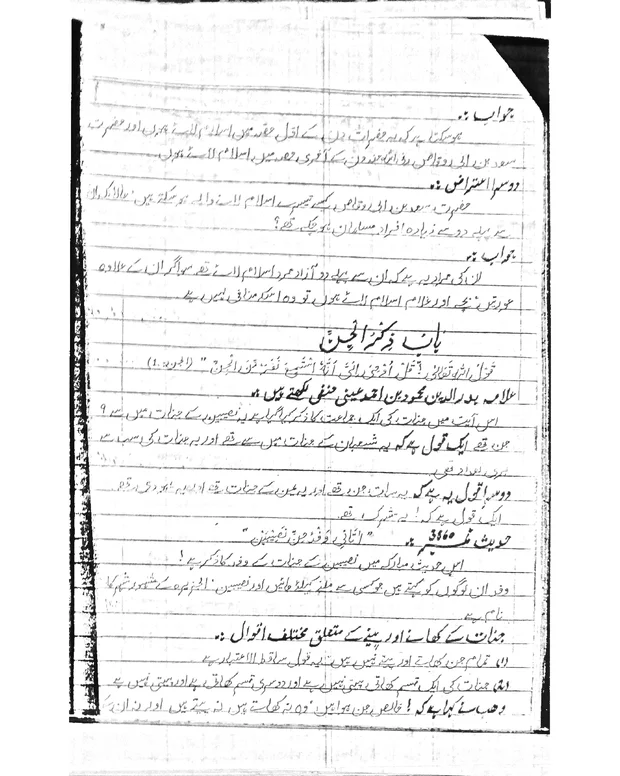 جواب :۔
ہو سکتا ہے کہ یہ حضرات دن کے اول حصہ میں اسلام لائے ہوں اور حضرت
سعد بن ابی وقاص رضی اللہ عنہ دن کے آخری حصہ میں اسلام لائے ہوں
دوسرا اعتراض :۔
حضرت سعد بن ابی وقاص کیسے تیسرے اسلام لانے والے ہو سکتے ہیں حالانکہ ان
سے پہلے دو سے زیادہ افراد مسلمان ہو چکے تھے؟
جواب :۔
ان کی مراد یہ ہے کہ ان سے پہلے دو آزاد مرد اسلام لائے تھے سو اگر ان کے علاوہ
عورتیں بچے اور غلام اسلام لائے ہوں تو وہ اسکے منافی نہیں ہے
بَابُ ذِكْرُ الْجِنِّ
قَوْلُ اللّٰهِ تَعَالٰی! قُلْ أُوْحِيَ إِلَيَّ أَنَّهُ اسْتَمَعَ نَفَرٌ مِّنَ الْجِنِّ" (الجن:1)
علامہ بدر الدین محمود بن احمد عینی حنفی لکھتے ہیں :۔
اس آیت میں جنات کی ایک جماعت کا ذکر کیا گیا ہے یہ نصیبین کے جنات میں سے 9
جن تھے ایک قول ہے کہ یہ شیصبان کے جنات میں سے تھے اور یہ جنات کی سب سے
بڑی تعداد تھی
دوسرا قول یہ ہے کہ یہ سات جن تھے اور یہ یمن کے جنات تھے اور یہ یہودی تھے
ایک قول ہے کہ! یہ مشرک تھے
حدیث نمبر 3860 :۔ "أَتَانِي وَفْدُ جِنِّ نَصِيبِيْنَ"
اس حدیث مبارکہ میں نصیبین کے جنات کے وفد کا ذکر ہے!
وفد ان لوگوں کو کہتے ہیں جو کسی سے ملنے کیلئے جائیں اور نصیبین، الجزیرہ کے مشہور شہر کا
نام ہے
جنات کے کھانے اور پینے کے متعلق مختلف اقوال :۔
(1) تمام جن کھاتے اور پیتے نہیں ہیں یہ قول ساقط الاعتبار ہے
(2) جنات کی ایک قسم کھاتی پیتی نہیں ہے اور دوسری قسم کھاتی ہے اور پیتی نہیں ہے
وھب نے کہا ہے کہ! خالص جن ہوا ہیں وہ نہ کھاتے ہیں نہ پیتے ہیں اور نہ ان